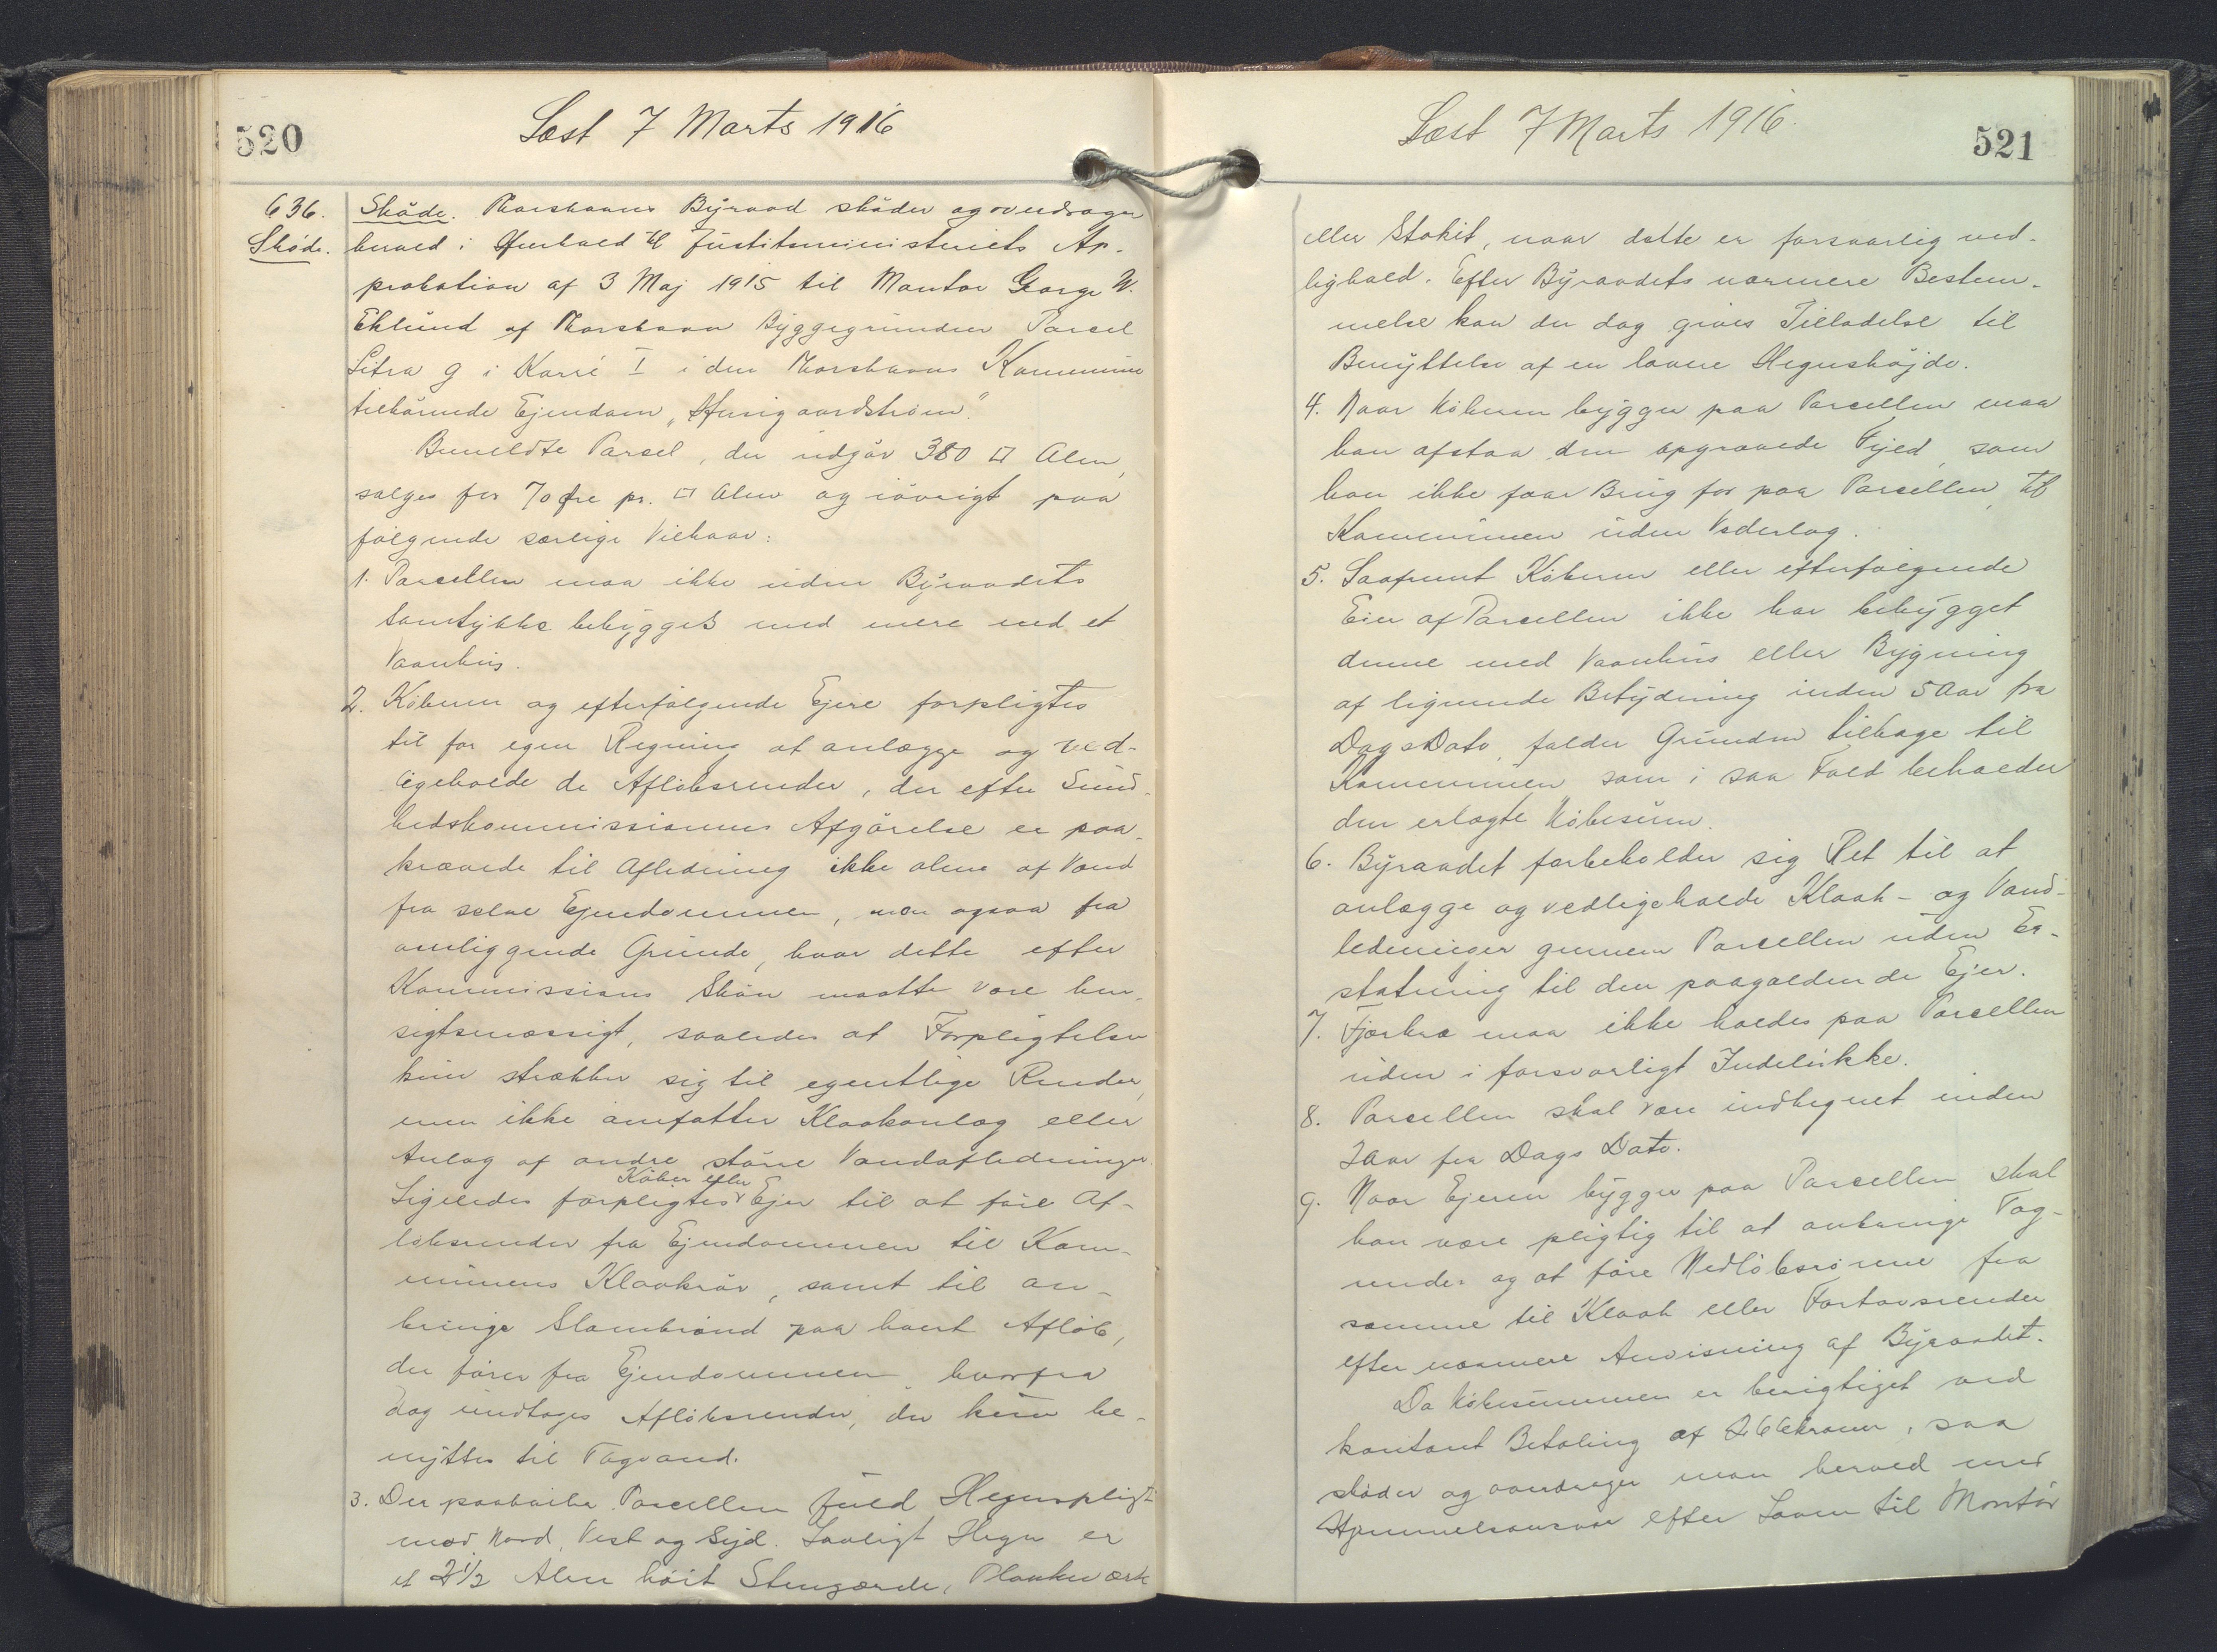 520
Læst 7 Marts 1916
636.
Skøde.
Skøde. Thorshavns Byraad skøder og overdrager
herved i Henhold til Justitsministeriets Ap-
probation af 3 Maj 1915 til Montør George W.
Eklund af Thorshavn Byggegrunden Parcel
Litra g i Karré I i den Thorshavns Kommune
tilhørende Ejendom „Husigaardstrøm".
Bemeldte Parcel, der udgør 380 □ Alen,
sælges for 70 Øre pr. □ Alen og iøvrigt paa
følgende særlige Vilkaar:
1. Parcellen maa ikke uden Byraadets
Samtykke bebygges med mere end et
Vaanhus.
2. Køberen og efterfølgende Ejere forpligtes
til for egen Regning at anlægge og ved-
ligeholde de Afløbsrender, der efter Sund-
hedskommissionens Afgørelse er paa-
krævede til Afledning ikke alene af Vand
fra selve Ejendommen, men ogsaa fra
omliggende Grunde, hvor dette efter
Kommissions Skøn maatte være hen-
sigtsmæssigt, saaledes at Forpligtelsen
kun strækker sig til egentlige Render,
men ikke omfatter Kloakanlæg eller
Anlæg af andre større Vandafledninger.
Køber eller
Ligeledes forpligtes Ejer til at føre Af-
løbsrender fra Ejendommen til Kom-
munens Kloakrør, samt til an-
bringe Slambrønd paa hvert Afløb,
der fører fra Ejendommen, hvorfra
dog undtages Afløbsrender, der kun be-
nyttes til Tagvand.
3. Der paahviler Parcellen fuld Hegnspligt
mod Nord, Vest og Syd. Lovligt Hegn er
et 2½ Alen høit Stengærde, Plankeværk
Læst 7 Marts 1916.
521
eller Stakit, naar dette er forsvarlig ved-
lighold. Efter Byraadets nærmere Bestem-
melse kan der dog gives Tilladelse til
Benyttelse af en lavere Hegnshøjde.
4. Naar Køberen bygger paa Parcellen maa
han afstaa den opgravede Fyld, som
han ikke faar Brug for paa Parcellen, til
Kommunen uden Vederlag.
5. Saafremt Køberen eller efterfølgende
Eier af Parcellen ikke har bebygget
denne med Vaanhus eller Bygning
af lignende Betydning inden 5 Aar fra
Dags Dato, falder Grunden tilbage til
Kommunen som i saa Fald beholder
den erlagte Købesum.
6. Byraadet forbeholder sig Ret til at
anlægge og vedligeholde Kloak- og Vand-
ledninger gennem Parcellen uden Er-
statning til den paagældende Ejer.
7. Fjærkræ maa ikke holdes paa Parcellen
uden i forsvarligt Indelukke.
8. Parcellen skal være indhegnet inden
2 Aar fra Dags Dato.
9. Naar Ejeren bygger paa Parcellen skal
han være pligtig til at anbringe Tag-
render og at føre Nedløbsrørene fra
samme til Kloak eller Fortovsrender
efter nærmere Anvisning af Byraadet.
Da Købesummen er berigtiget ved
kontant Betaling af 266 kroner, saa
skøder og overdrager man herved med
Hjemmelsansvar efter Loven til Montør